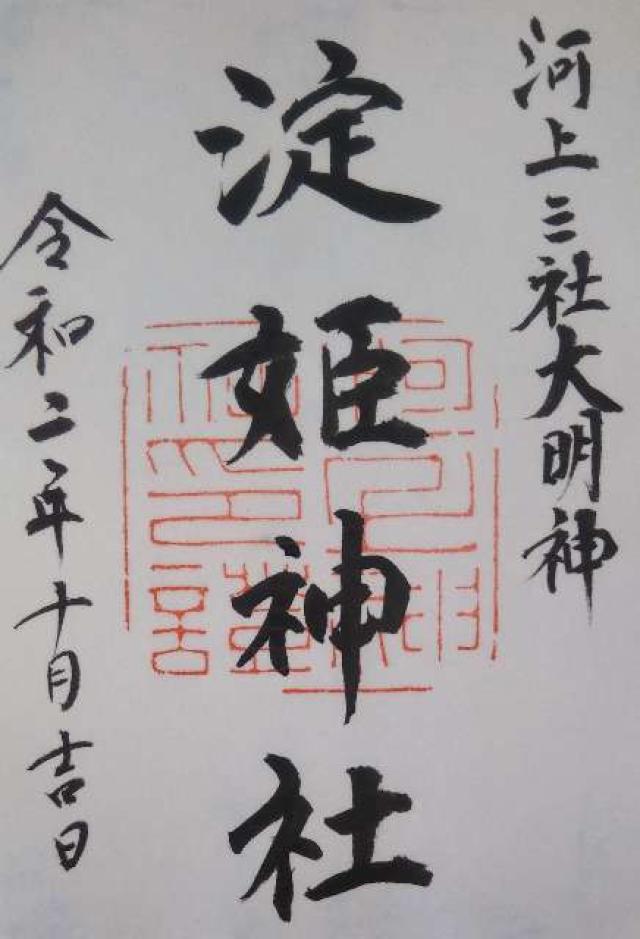 河上三社大明神
淀姫神社
令和二年十月吉日